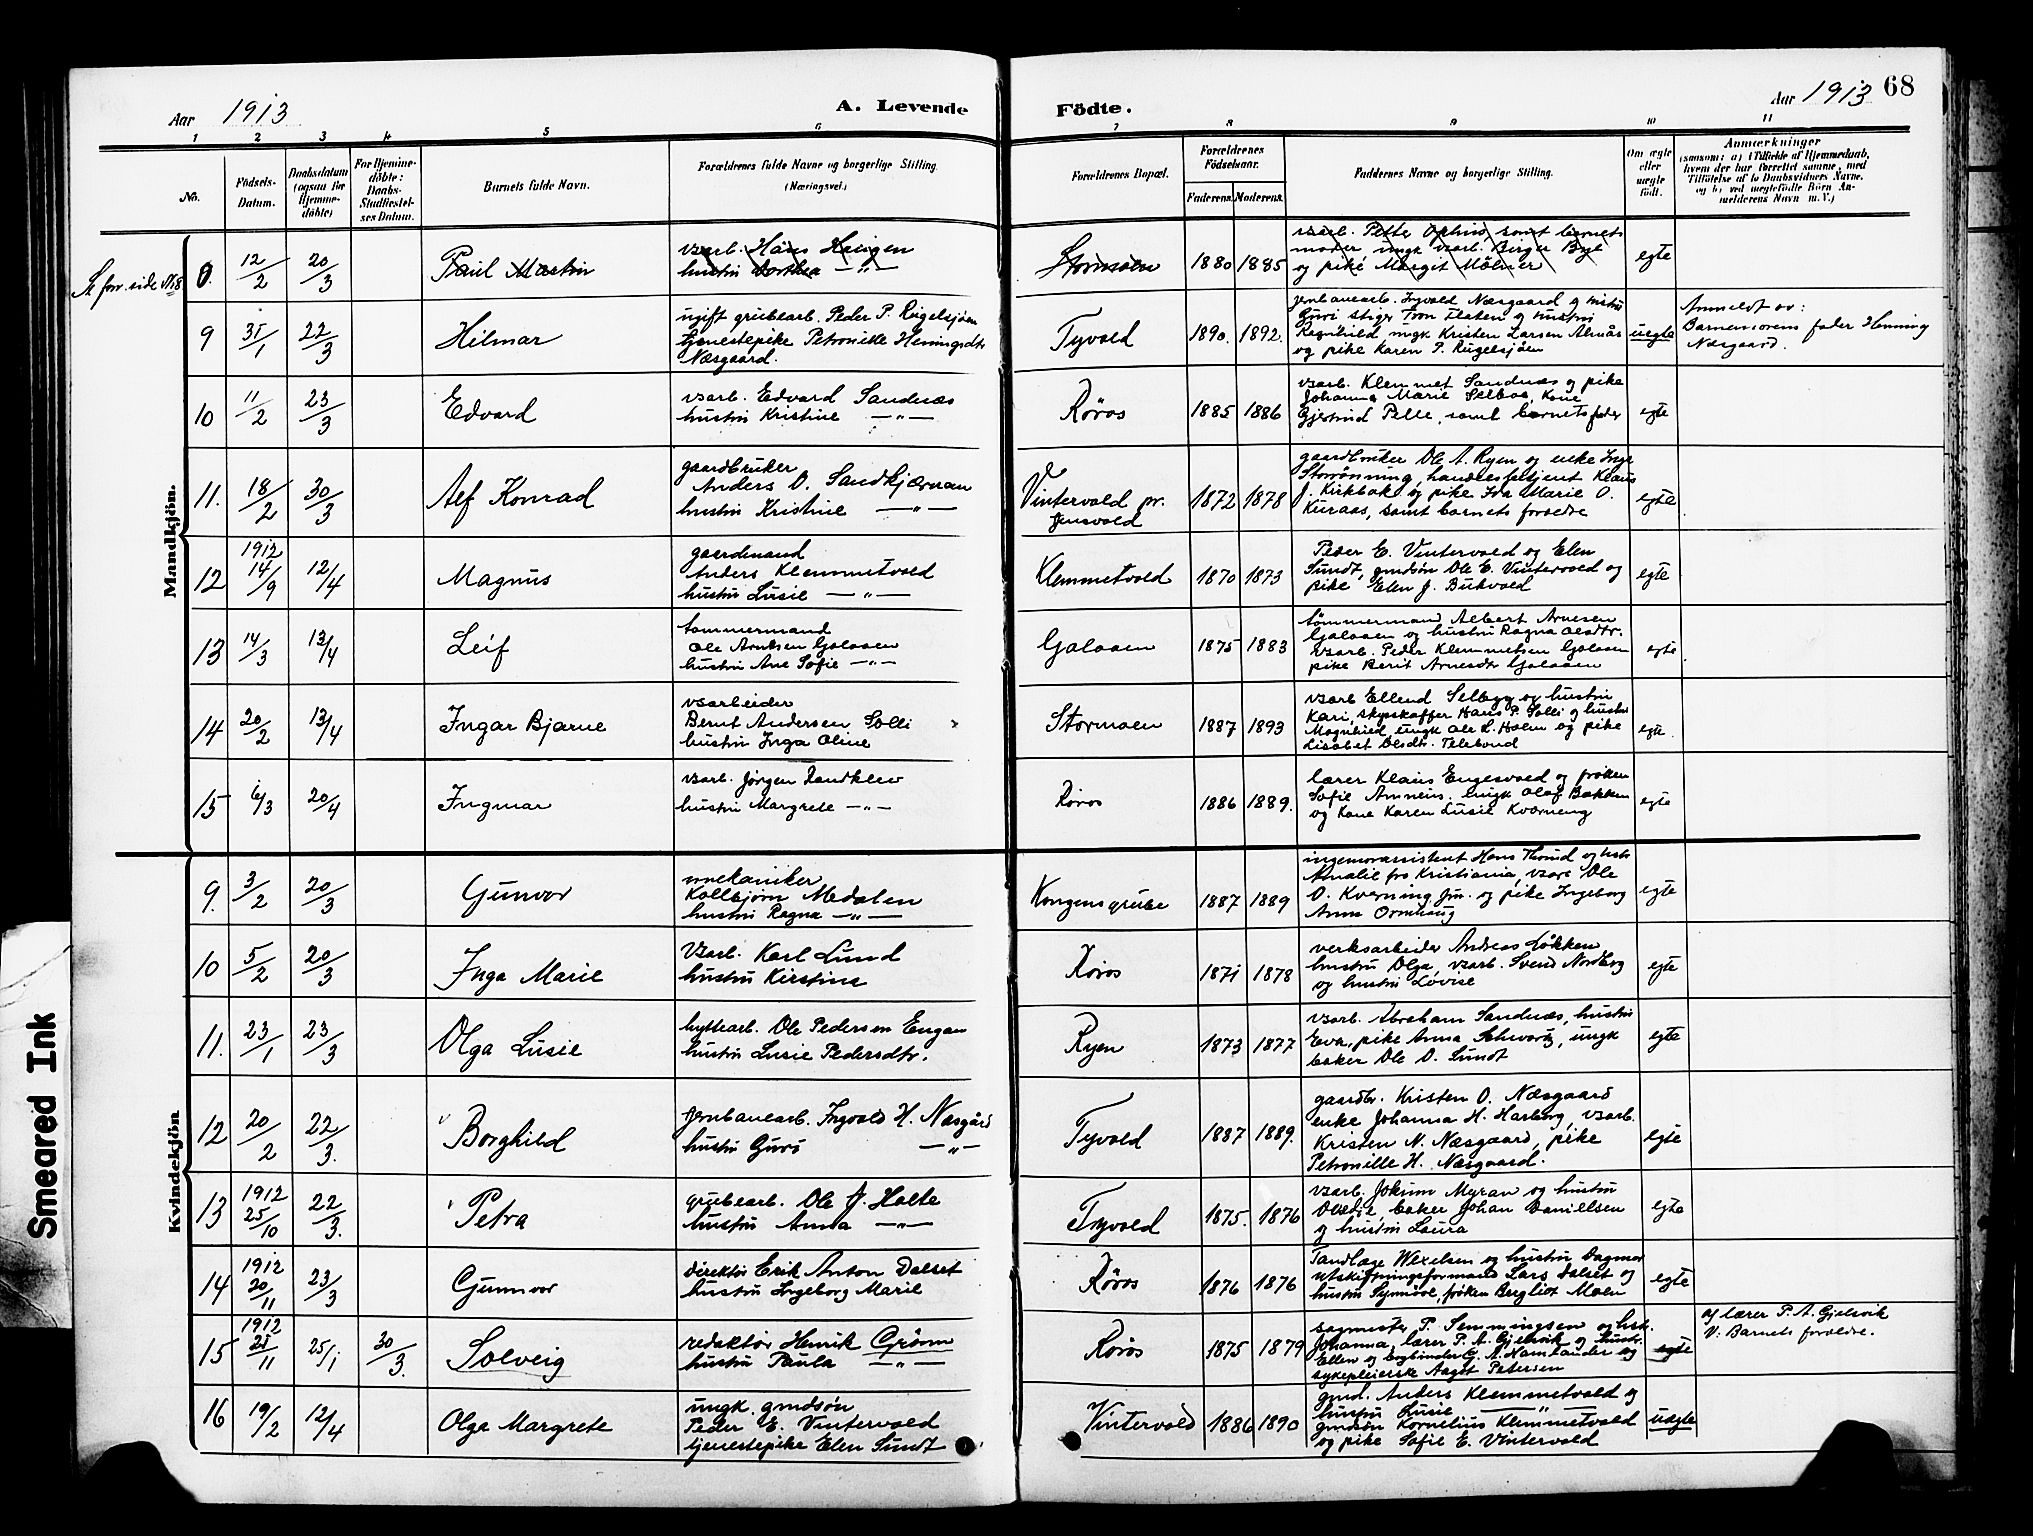 Aar 1913
A. Levende Födte.
Aar 1913 68
1 2 3 4 5 6 7 8 9 10 11
No.
Födsels-Datum.
Daabsdatum (ogsaa for Hjemme-döbte)
For Hjemme-döbte: Daabs-Stadfæstel-ses Datum.
Barnets fulde Navn.
Forældrenes fulde Navne og borgerlige Stilling. (Næringsvei.)
Forældrenes Bopæl.
Forældrenes Födselsaar.
Faderens. Moderens.
Faddernes Navne og borgerlige Stilling.
Om ægte eller uægte födt.
Anmærkninger
(saasom: a) i Tilfælde af Hjemmedaab,
hvem der har forrettet samme, med
Tilföielse af to Daabsvidners Navne,
og b) ved uægtefödte Börn An-
melderens Navn m. V.)
Mandkjön.
Se forr. side No 8
12/2 20/3 Paul Martin
vsarb. Hans Haugen
hustru Dorthea —"—
Stormoen 1880 1885
og pike Margit Mölner
egte
9 31/1 22/3 Hilmar
ugift grubearb. Peder P. Rugelsjøen
tjenestepike Petronille Henningsdtr
Næsgaard.
Tyvold 1890. 1892.
jernbanearb. Ingvald Næsgaard og hustru
Guri stiger Tron Flaten og hustru
Ragnhild, ungk Kristen Larsen Almås
og pike Karen P. Rugelsjöen
uegte
Anmeldt av:
Barnemorens fader Henning
Næsgaard.
10 11/2 23/3 Edvard
vsarb. Edvard Sandnæs
hustru Kristine —"—
Röros 1885 1886
vsarb. Klemmet Sandnæs og pike
Johanna Marie Selboe, Kone
Gjertrud Pelle, samt barnets fader
egte
11. 18/2 30/3 Alf Konrad
gaardbruker
Anders O. Sandkjærnan
hustru Kristine —"—
Vintervold pr.
Jensvold
1872 1878
gaardbruker Ole A. Ryen og enke Inger
Storrönning, handelsbetjent Klaus
J. Kirkbak og pike Ida Marie O.
Kuraas, samt barnets foreldre
egte
12 1912 14/9 12/4 Magnus
gaardmand
Anders Klemmetvold
hustru Lusie —"—
Klemmetvold 1870 1873
Peder E. Vintervold og Elen
Sundt, gmdsön Ole E. Vintervold og
pike Elen J. Bukvold
egte
13 14/3 13/4 Leif
tömmermand
Ole Arntsen Galaaen
hustru Ane Sofie —"—
Galaaen 1875 1883
tömmermand Albert Arnesen
Galaaen og hustru Ragna Olsdtr.
Vsarb. Peder Klemmetsen Galaaen
pike Berit Arnesdtr Galaaen
egte
14 20/2 13/4 Ingar Bjarne
vsarbeider
Bernt Andersen Solli
hustru Inga Oline
Stormoen 1887 1893
vsarb Ellend Selbygg og hustru
Kari, skysskaffer Hans P. Solli og hustru
Magnhild, ungk Ole L. Holm og pike
Lisabet Olsdtr. Telebond
egte.
15 6/3 20/4 Ingmar
vsarb. Jörgen Sandklev
hustru Margrete —"—
Röros 1886 1889.
lærer Klaus Engesvold og fröken
Sofie Amneus. ungk Olaf Bakken
og Kone Karen Lusie Kværneng
egte
Kvindekjön
9. 3/2 20/3 Gunvor
mekaniker
Kolbjörn Medalen
hustru Ragna —"—
Kongens grube 1887 1889
ingeniorassistent Hans Thorud og hstr
Amalie fra Kristiania, vsarb Ole
O. Kverning Jun. og pike Ingeborg
Anna Ormhaug
egte
10 5/2 20/3 Inga Marie
Vsarb. Karl Lund
hustru Kirstine
Röros 1871 1878
verksarbeider Andreas Løkken
hustru Olga, vsarb. Svend Nordberg
og hustru Lovise
egte
11. 23/1 23/3 Olga Lusie
hyttearb. Ole Pedersen Engan
hustru Lusie Pedersdtr.
Ryen 1873 1877
vsarb. Abraham Sandnæs, hustru
Eva, pike Anna Schwartz, ungk
baker Ole O. Sundt
egte
12 20/2 22/3. Borghild
jernbanearb. Ingvald H. Næsgård
hustru Guri —"—
Tyvold 1887 1889.
gaardbr. Kristen O. Næsgaard
enke Johanna H. Harborg, vsarb.
Kristen N. Næsgaard, pike
Petronille H. Næsgaard.
egte
13 1912 25/10 22/3. Petra
grubearb. Ole J. Holte
hustru Anna —"—
Tyvold 1875. 1876
vsarb. Jokum Myran og hustru
baker Johan Danielsen
og hustru Laura
egte
14 1912 20/11 23/3 Gunnvor
direktør Erik Anton Dalset
hustru Ingeborg Marie
Röros 1876 1876
Tandlæge Wexelsen og hustru Dagmar
utskiftningsformand Lars Dalset og
hustru Synnöve, fröken Bergliot Moen
egte
15 1912 25/11 25/1 30/3. Solveig
redaktör Henrik Gröm
hustru Paula —"—
Röros 1875 1879
sogmester P. Semmingsen og hst.
Johanna, lærer P. A. Gjelsvik og hustr.
Ellen og bogbinder G. A. Ramlander og
sykepleierske Aagot Petersen
egte
af lærer P. A. Gjelsvik
V. Barnets forældre.
16 19/2 12/4 Olga Margrete
ungk. gmdsön
Peder E. Vintervold
tjenestepike Elen Sundt
Vintervold 1886 1890
gmd. Anders Klemmetvold og
hustru Lusie —"—
gmdsön Kornelius Klemmetvold
og pike Sofie E. Vintervold
uegte
Smeared Ink